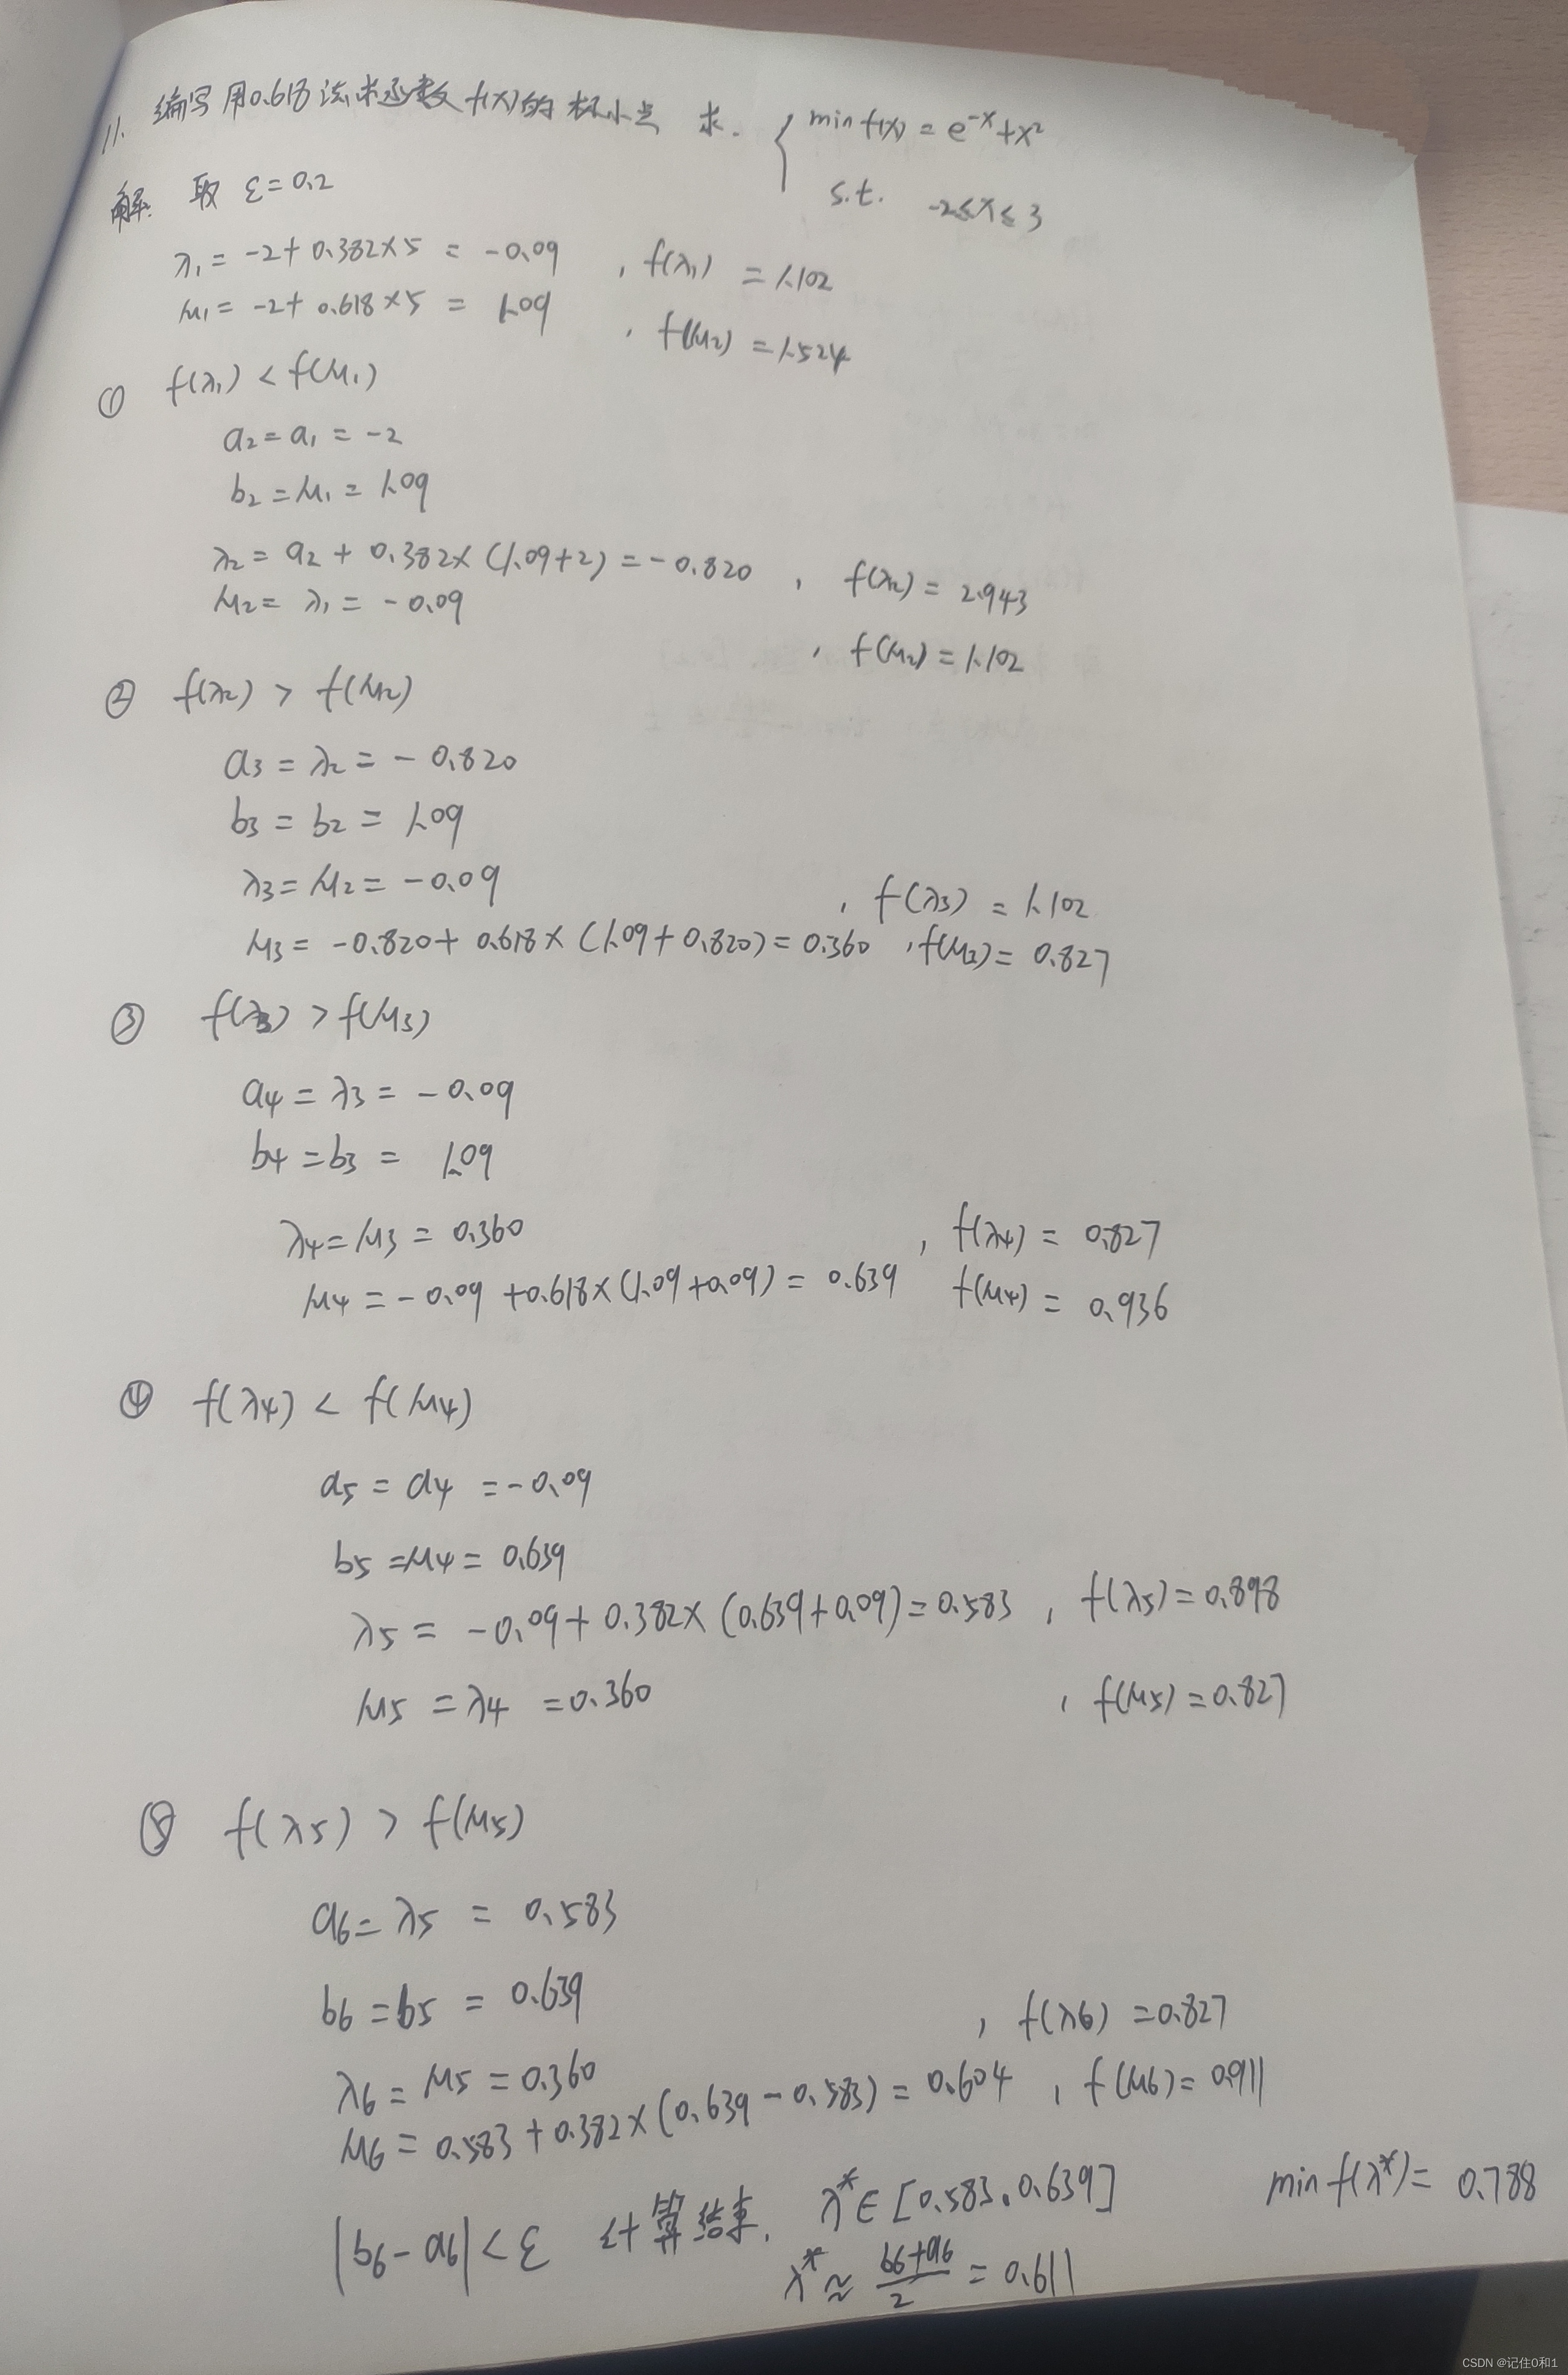 11. 编写用0.618法求函数f(x)的极小点 求. { min f(x) = e^-x + x²
s.t. -2≤x≤3
解: 取 ε=0.2
λ₁ = -2 + 0.382×5 = -0.09 , f(λ₁) = 1.102
μ₁ = -2 + 0.618×5 = 1.09 , f(μ₂) = 1.524
① f(λ₁) < f(μ₁)
a₂ = a₁ = -2
b₂ = μ₁ = 1.09
λ₂ = a₂ + 0.382×(1.09+2) = -0.820 , f(λ₂) = 2.943
μ₂ = λ₁ = -0.09 , f(μ₂) = 1.102
② f(λ₂) > f(μ₂)
a₃ = λ₂ = -0.820
b₃ = b₂ = 1.09
λ₃ = μ₂ = -0.09 , f(λ₃) = 1.102
μ₃ = -0.820 + 0.618×(1.09+0.820) = 0.360 , f(μ₃) = 0.827
③ f(λ₃) > f(μ₃)
a₄ = λ₃ = -0.09
b₄ = b₃ = 1.09
λ₄ = μ₃ = 0.360 , f(λ₄) = 0.827
μ₄ = -0.09 + 0.618×(1.09+0.09) = 0.639 f(μ₄) = 0.936
④ f(λ₄) < f(μ₄)
a₅ = a₄ = -0.09
b₅ = μ₄ = 0.639
λ₅ = -0.09 + 0.382×(0.639+0.09) = 0.583 , f(λ₅) = 0.898
μ₅ = λ₄ = 0.360 , f(μ₅) = 0.827
⑤ f(λ₅) > f(μ₅)
a₆ = λ₅ = 0.583
b₆ = b₅ = 0.639
λ₆ = μ₅ = 0.360 , f(λ₆) = 0.827
μ₆ = 0.583 + 0.382×(0.639-0.583) = 0.604 , f(μ₆) = 0.911
|b₆-a₆| < ε 计算结束. λ* ∈ [0.583, 0.639] min f(λ*) = 0.788
λ* ≈ (b₆+a₆)/2 = 0.611
CSDN @记住0和1